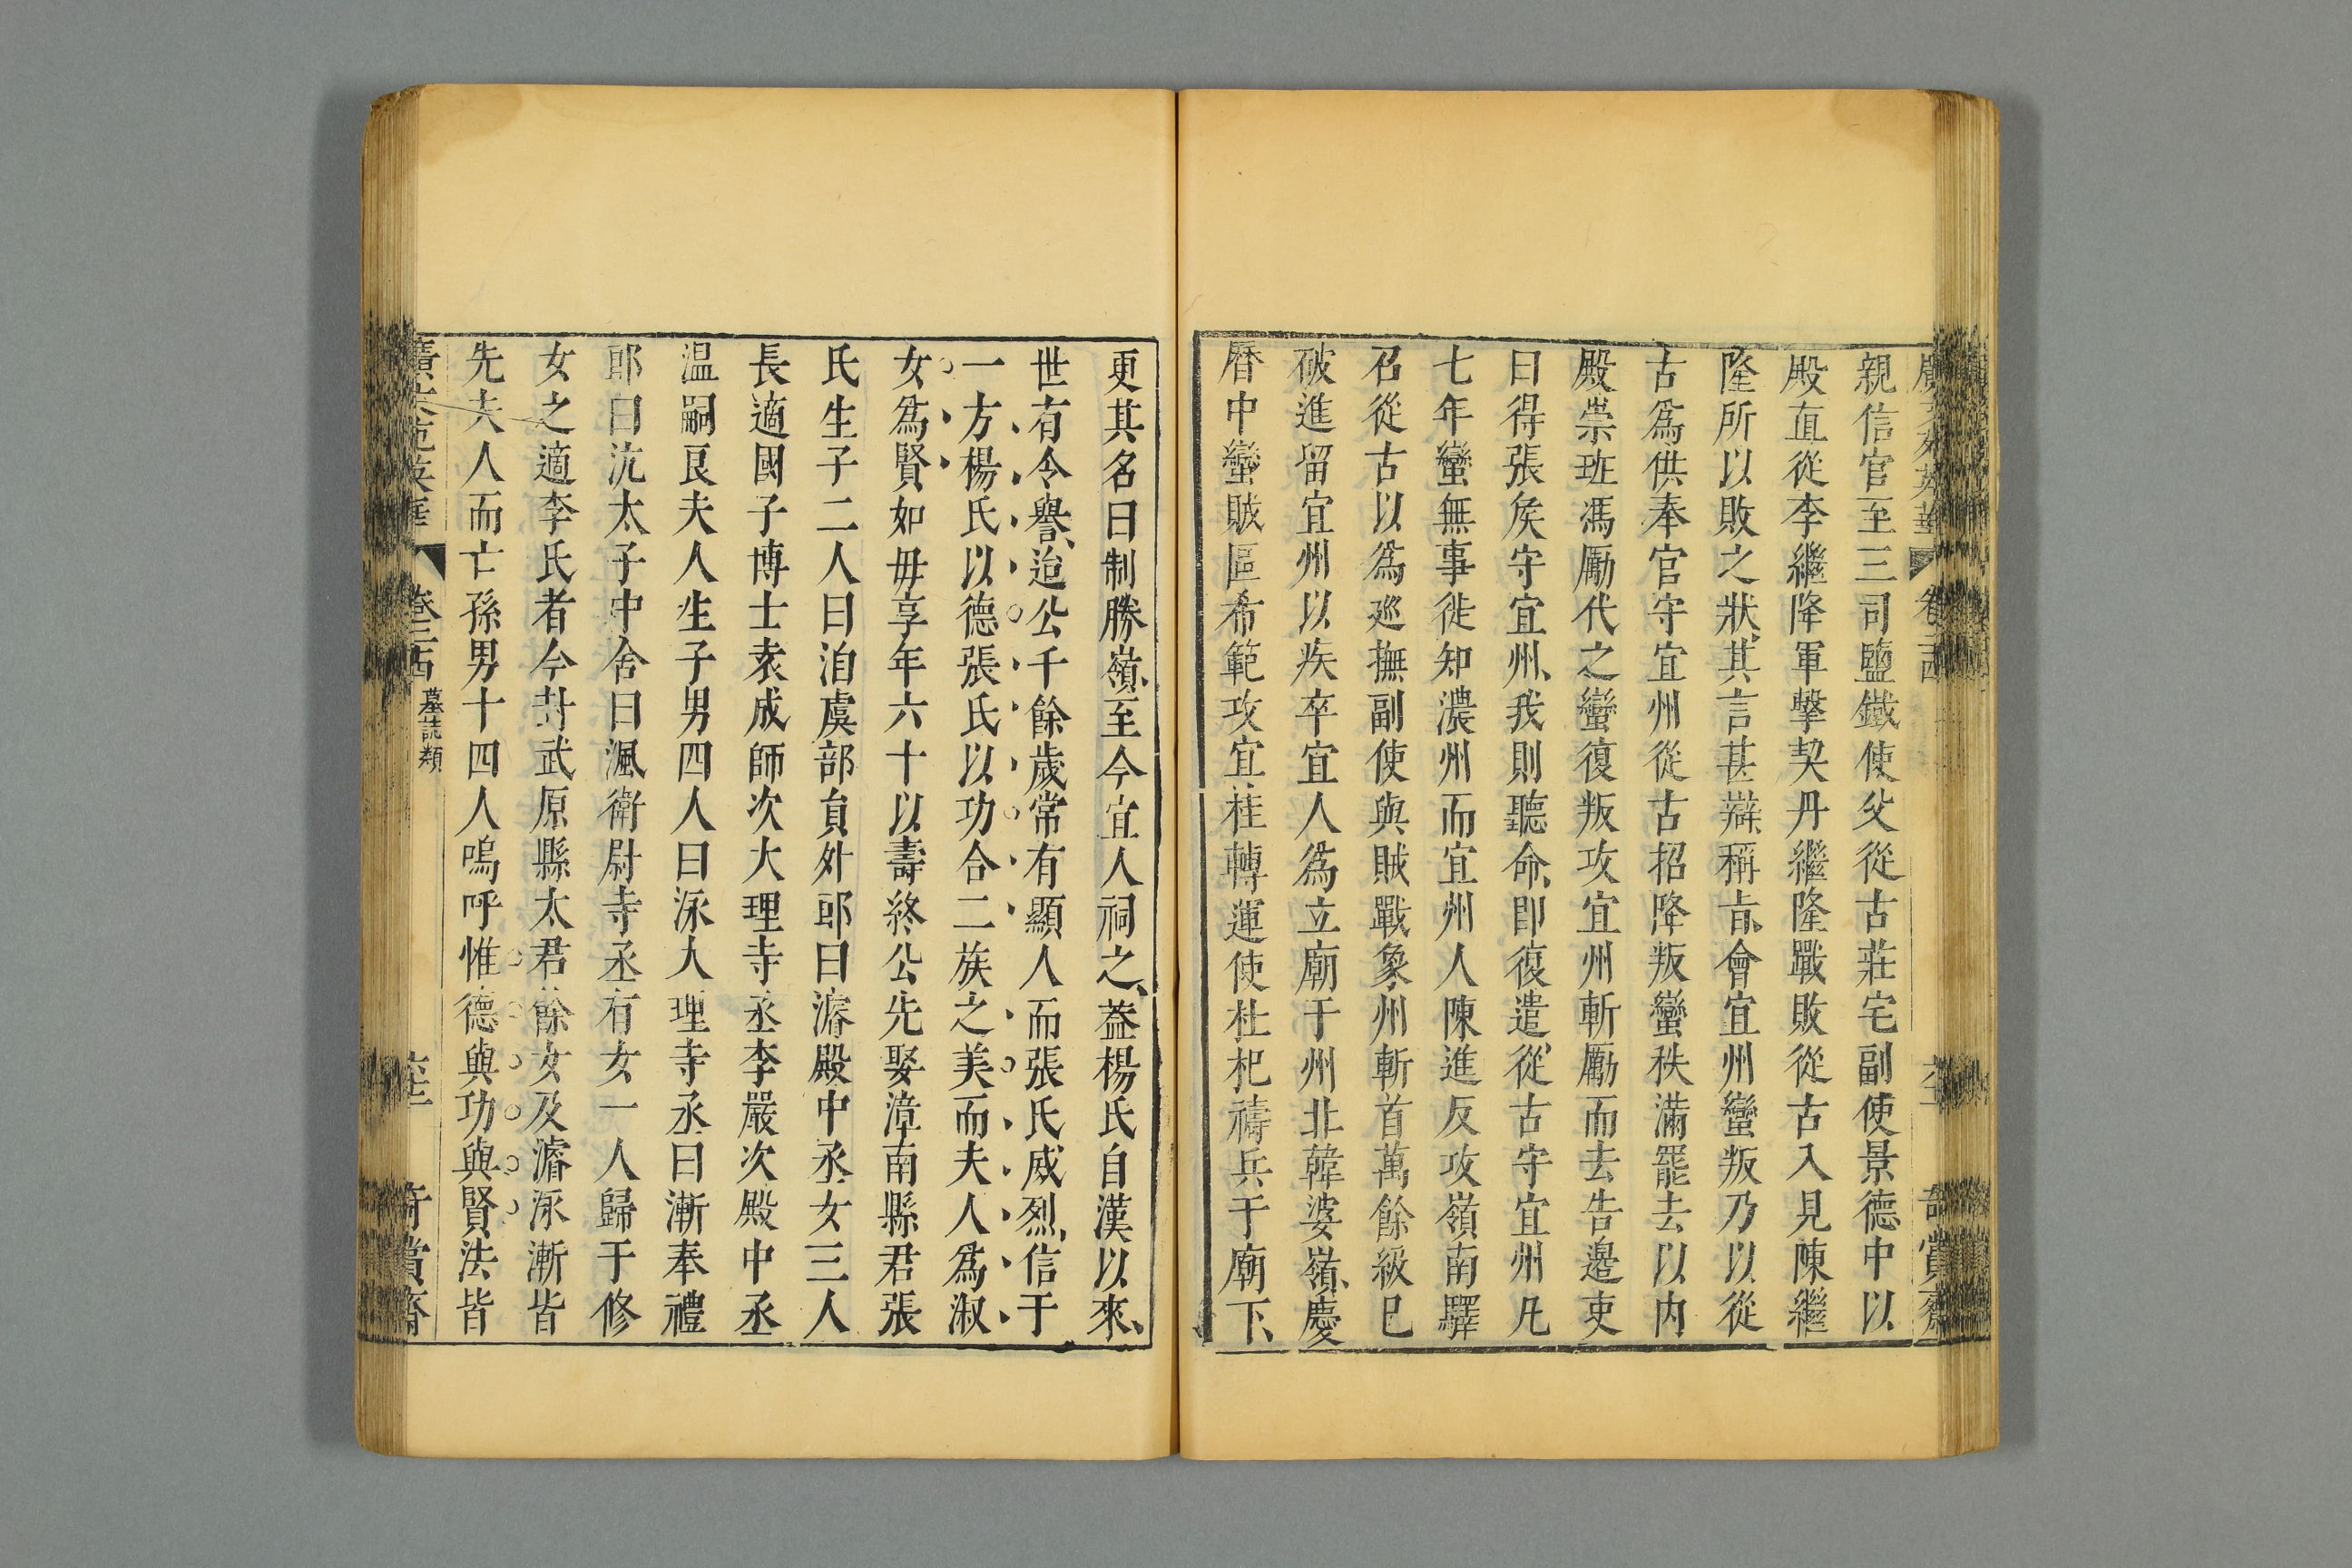 親信官至三司鹽鐵使父從古莊宅副使景德中以
殿直從李繼隆軍擊契丹繼隆戰敗從古入見陳繼
隆所以敗之狀其言甚辯稱旨會宜州蠻叛乃以從
古爲供奉官守宜州從古招降叛蠻秩滿罷去以内
殿崇班馮勵代之蠻復叛攻宜州斬勵而去告邊吏
曰得張矦守宜州我則聽命即復遣從古守宜州凡
七年蠻無事徙知濃州而宜州人陳進反攻嶺南驛
召從古以爲廵撫副使與賊戰象州斬首萬餘級巳
破進留宜州以疾卒宜人爲立廟于州北韓婆嶺慶
曆中蠻賊區希範攻宜桂轉運使杜杞禱兵于廟下
更其名曰制勝嶺至今宜人祠之葢楊氏自漢以來
世有令譽迨公千餘歲常有顯人而張氏威烈信于
一方楊氏以德張氏以功合二族之美而夫人爲淑
女爲賢如毋享年六十以壽終公先娶漳南縣君張
氏生子二人曰洎虞部貟外郎曰濬殿中丞女三人
長適國子博士袁成師次大理寺丞李嚴次殿中丞
温嗣良夫人生子男四人曰泳大理寺丞曰漸奉禮
郎曰沆太子中舍曰渢衛尉寺丞有女一人歸于修
女之適李氏者今封武原縣太君餘女及濬泳漸皆
先夫人而亡孫男十四人嗚呼惟德與功與賢法皆
墓誌類